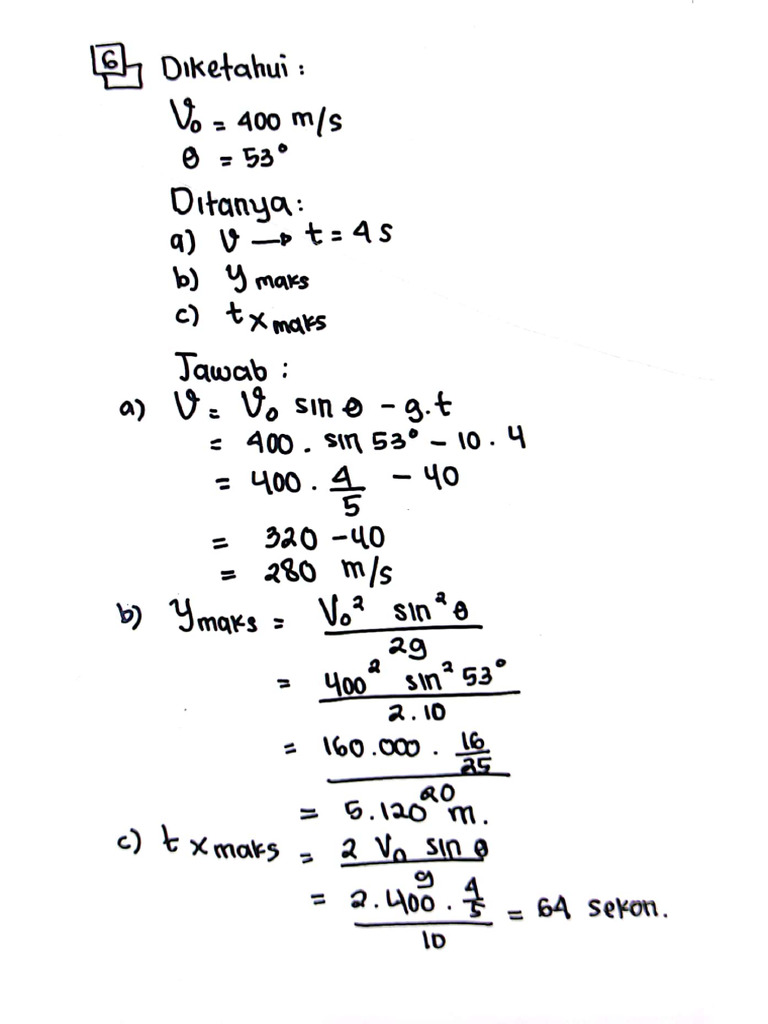 6 Diketahui :
V₀ = 400 m/s
θ = 53°
Ditanya:
a) v → t = 4 s
b) y maks
c) t x maks
Jawab :
a) v = V₀ sin θ - g.t
= 400 . sin 53° - 10 . 4
= 400 . 4/5 - 40
= 320 - 40
= 280 m/s
b) y maks = V₀² sin² θ / 2g
= 400² sin² 53° / 2.10
= 160.000 . 16/25 / 20
= 5.120 m.
c) t x maks = 2 V₀ sin θ / g
= 2.400 . 4/5 / 10 = 64 sekon.